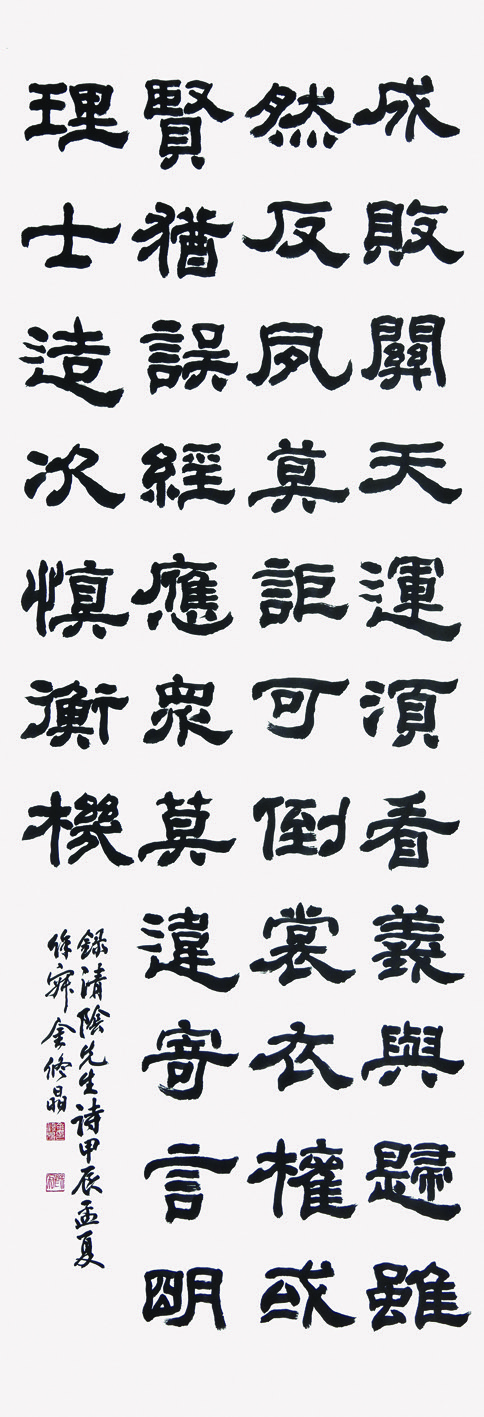 成敗關天運須看義與歸雖
然反夙莫詎可倒裳衣權或
賢猶誤經應衆莫違寄言朙
理士造次慎衡機
錄清陰先生詩甲辰孟夏
金修晶